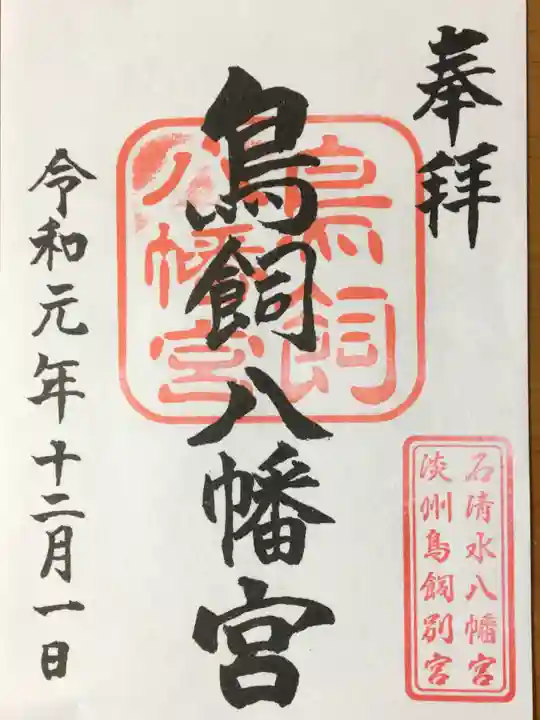 奉拝
石清水八幡宮
淡州鳥飼別宮
鳥飼八幡宮
鳥飼
八幡宮
令和元年十二月一日